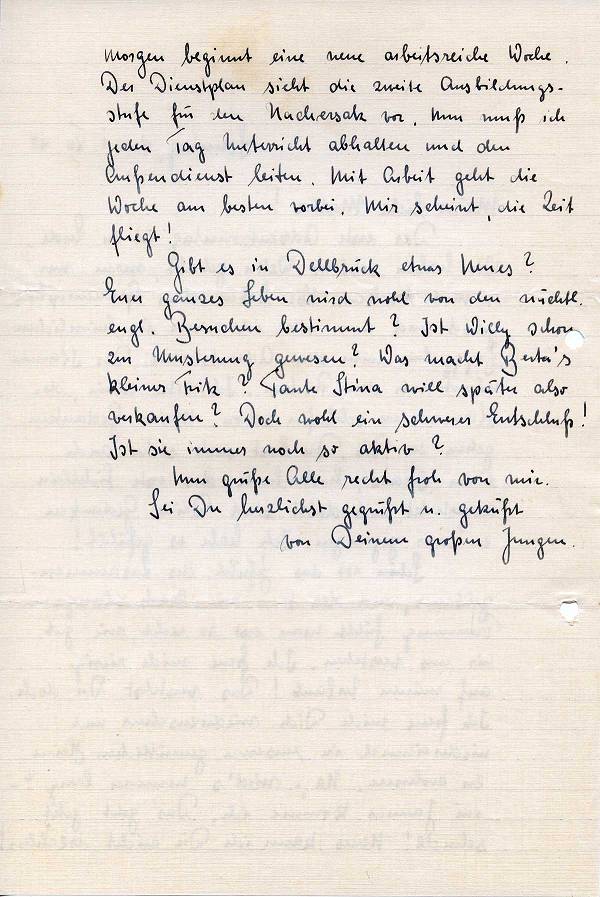 Morgen beginnt eine neue arbeitsreiche Woche.
Der Dienstplan sieht die zweite Ausbildungs-
stufe für den Nachersatz vor. Nun muß ich
jeden Tag Unterricht abhalten und den
Außendienst leiten. Mit Arbeit geht die
Woche am besten vorbei. Mir scheint, die Zeit
fliegt!
Gibt es in Dellbrück etwas Neues?
Euer ganzes Leben wird wohl von den nächtl.
engl. Besuchen bestimmt? Ist Willy schon
zur Musterung gewesen? Was macht Berta's
kleiner Fritz? Tante Stina will später also
verkaufen? Doch wohl ein schwerer Entschluß!
Ist sie immer noch so aktiv?
Nun grüße Alle recht froh von mir.
Sei Du herzlichst gegrüßt u. geküßt
von Deinem großen Jungen.